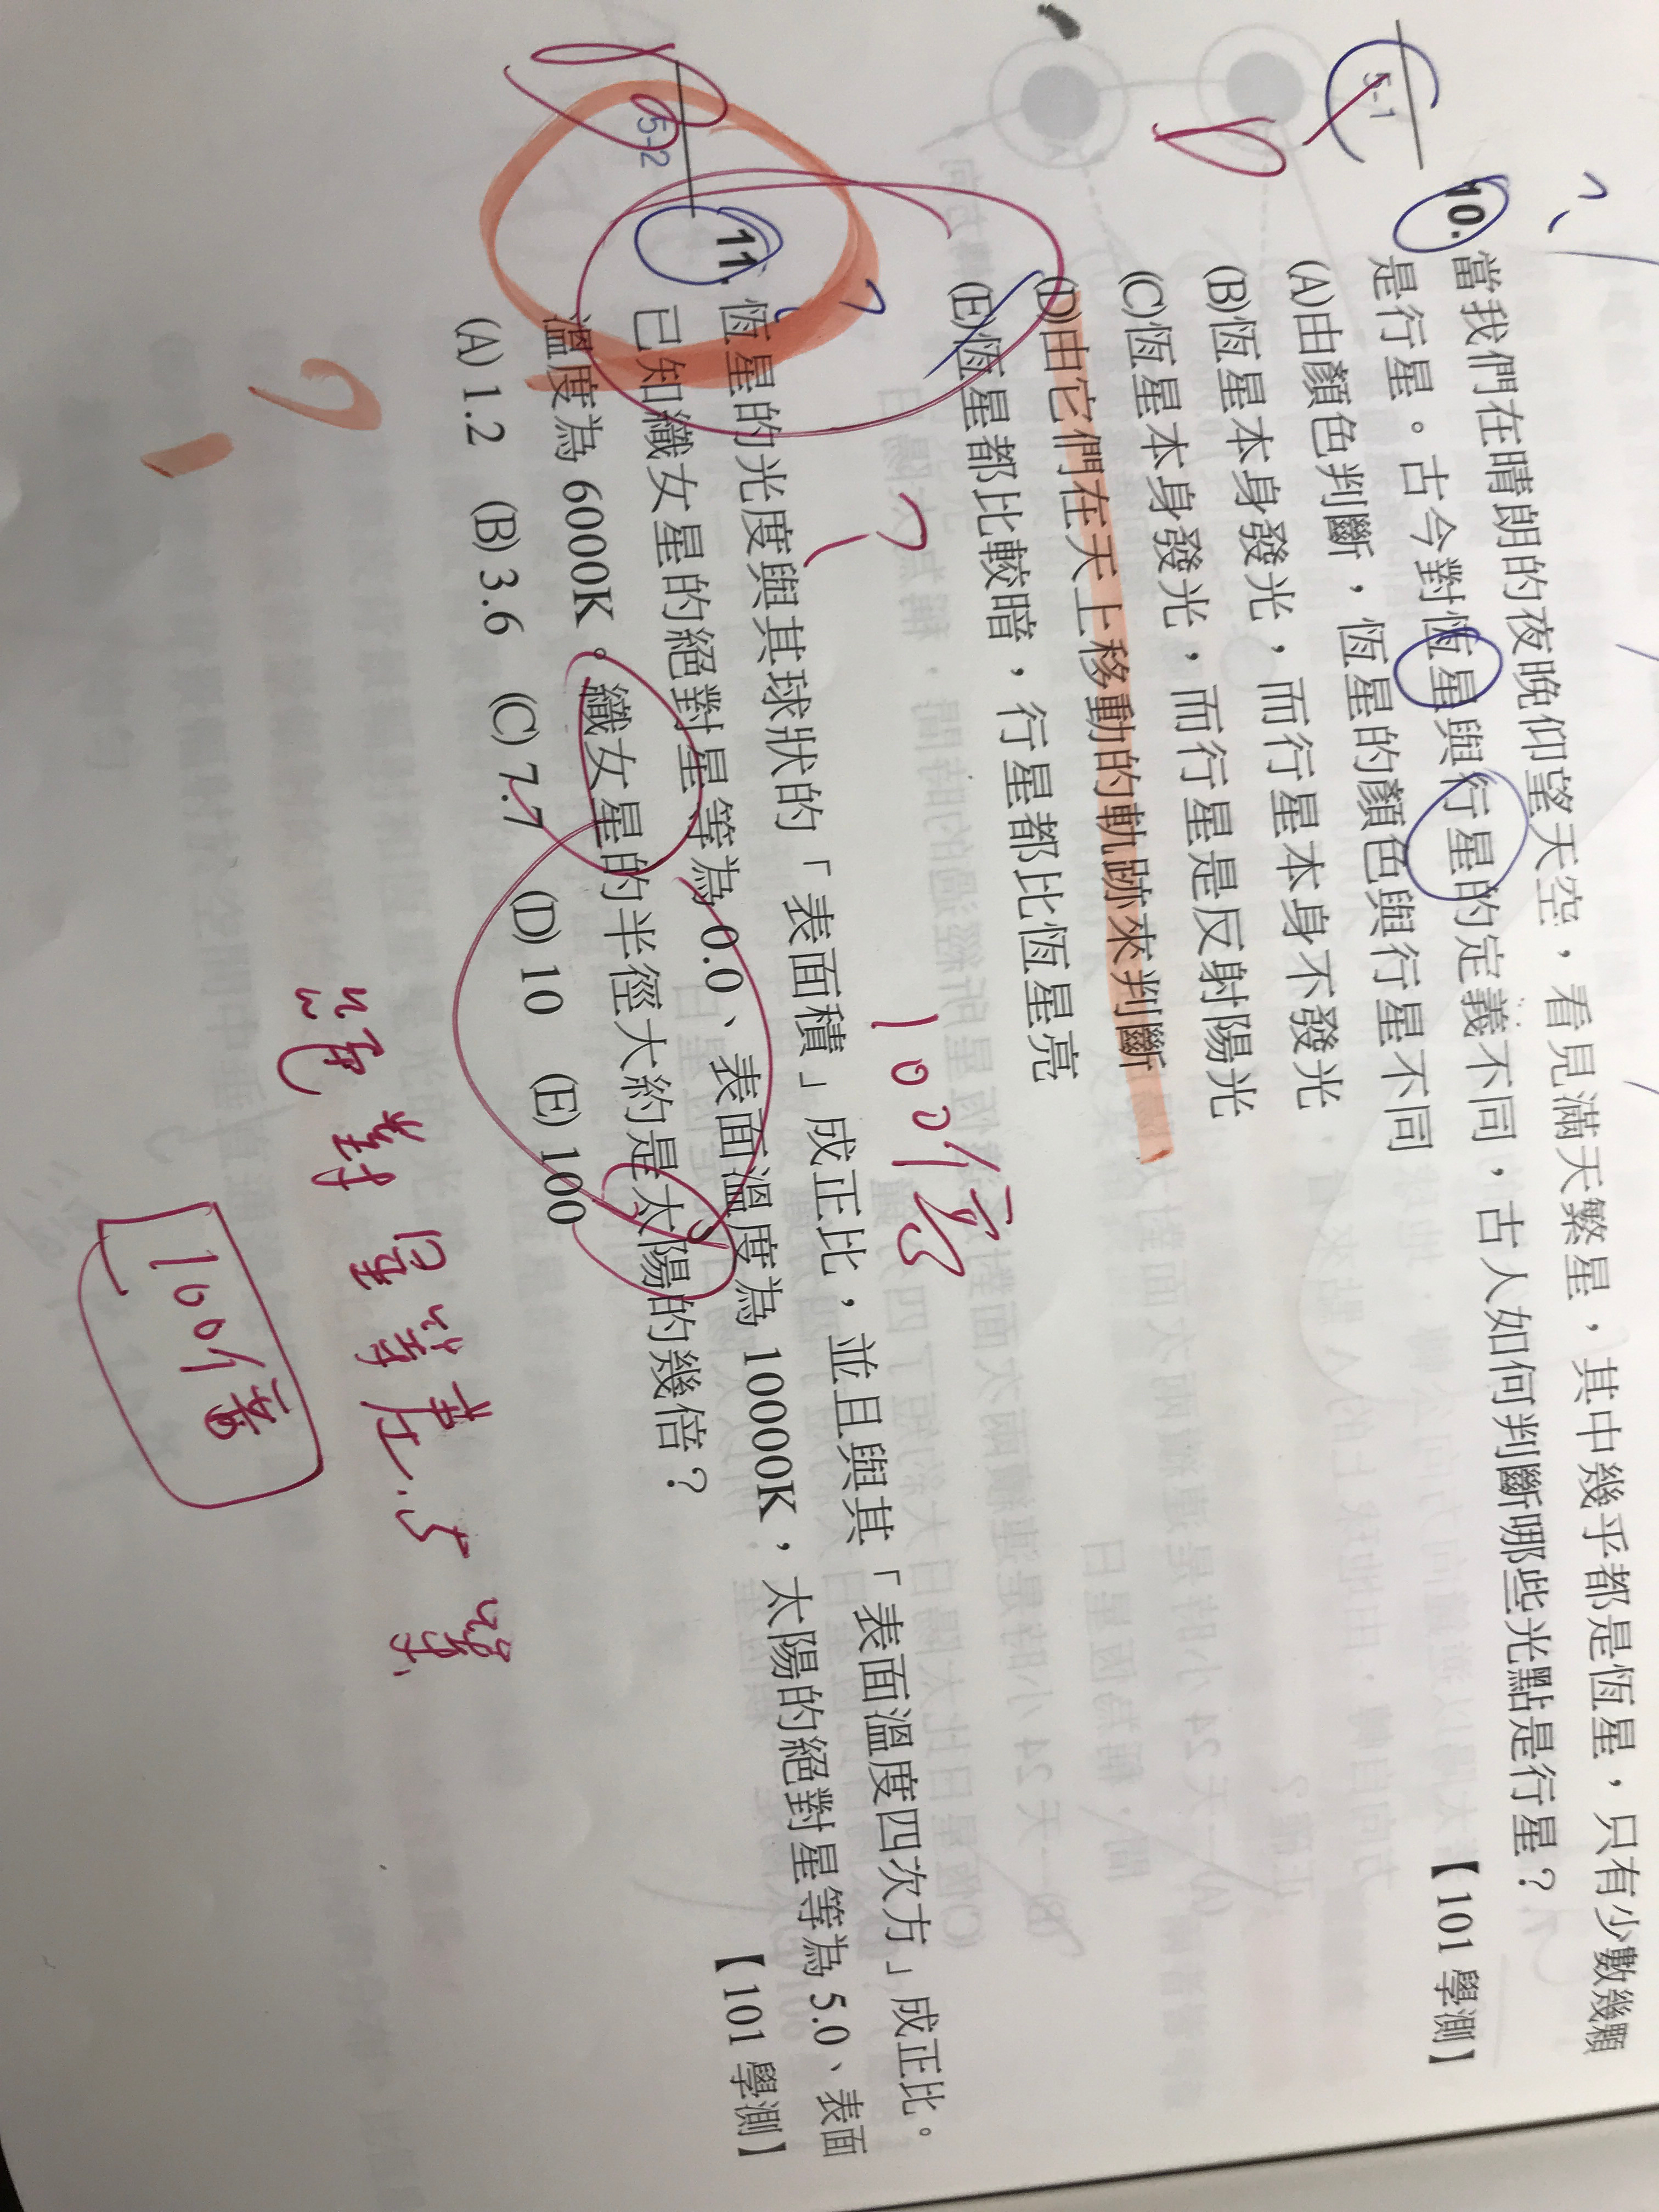 5-1
10.當我們在晴朗的夜晚仰望天空，看見滿天繁星，其中幾乎都是恆星，只有少數幾顆
是行星。古今對恆星與行星的定義不同，古人如何判斷哪些光點是行星？
【101 學測】
(A)由顏色判斷，恆星的顏色與行星不同
(B)恆星本身發光，而行星本身不發光
(C)恆星本身發光，而行星是反射陽光
(D)由它們在天上移動的軌跡來判斷
(E)恆星都比較暗，行星都比恆星亮
100倍亮
5-2
11.恆星的光度與其球狀的「表面積」成正比，並且與其「表面溫度四次方」成正比。
已知織女星的絕對星等為 0.0、表面溫度為 10000K，太陽的絕對星等為 5.0、表面
溫度為 6000K。織女星的半徑大約是太陽的幾倍？
【101 學測】
(A) 1.2 (B) 3.6 (C) 7.7 (D) 10 (E) 100
絕對星等差5等
100倍